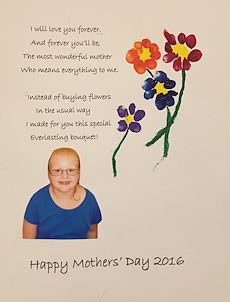 I will love you forever.
And forever you'll be,
The most wonderful mother
Who means everything to me.
Instead of buying flowers
In the usual way
I made for you this special
Everlasting bouquet!
Happy Mothers' Day 2016